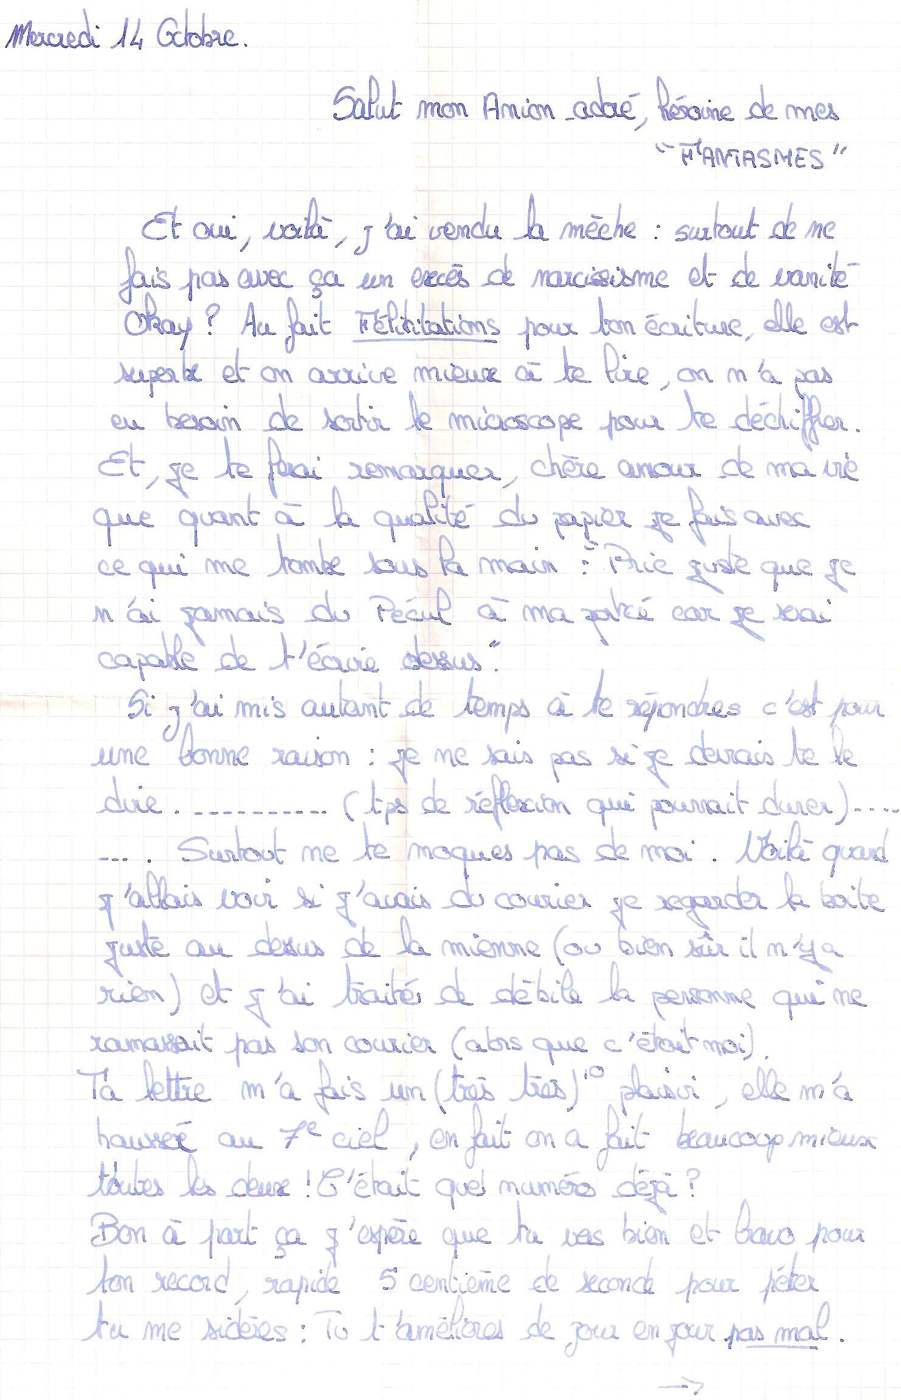 Mercredi 14 Octobre.
Salut mon Amion adoré, héroïne de mes
"FANTASMES"
Et oui, voilà, j'ai vendu la mèche : surtout de ne
fais pas avec ça un excès de narcissisme et de vanité
Okay ? Au fait Félititations pour ton écriture, elle est
superbe et on arrive mieux à te lire, on n'a pas
eu besoin de sortir le microscope pour te déchiffrer.
Et, je te ferai remarquer, chère amour de ma vie
que quant à la qualité du papier je fais avec
ce qui me tombe sous la main : "Prie juste que je
n'ai jamais du Pécul à ma porté car je serai
capable de t'écrire dessus".
Si j'ai mis autant de temps à te répondres c'est pour
une bonne raison : je ne sais pas si je devrais te le
dire. ........... (tps de réflexion qui pourrait durer) ....
.... Surtout ne te moques pas de moi. Voilà quand
j'allais voir si j'avais du courier je regarder la boite
juste au dessus de la mienne (où bien sûr il n'y a
rien) et j'ai traités de débile la personne qui ne
ramassait pas son courier (alors que c'était moi).
Ta lettre m'a fais un (très très)¹⁰ plaisir, elle m'a
haussée au 7e ciel, en fait on a fait beaucoup mieux
toutes les deux ! C'était quel numéro déjà ?
Bon à part ça j'espère que tu vas bien et bravo pour
ton record, rapide 5 centième de seconde pour péter
tu me sidères : Tu t'amélières de jour en jour pas mal.
→